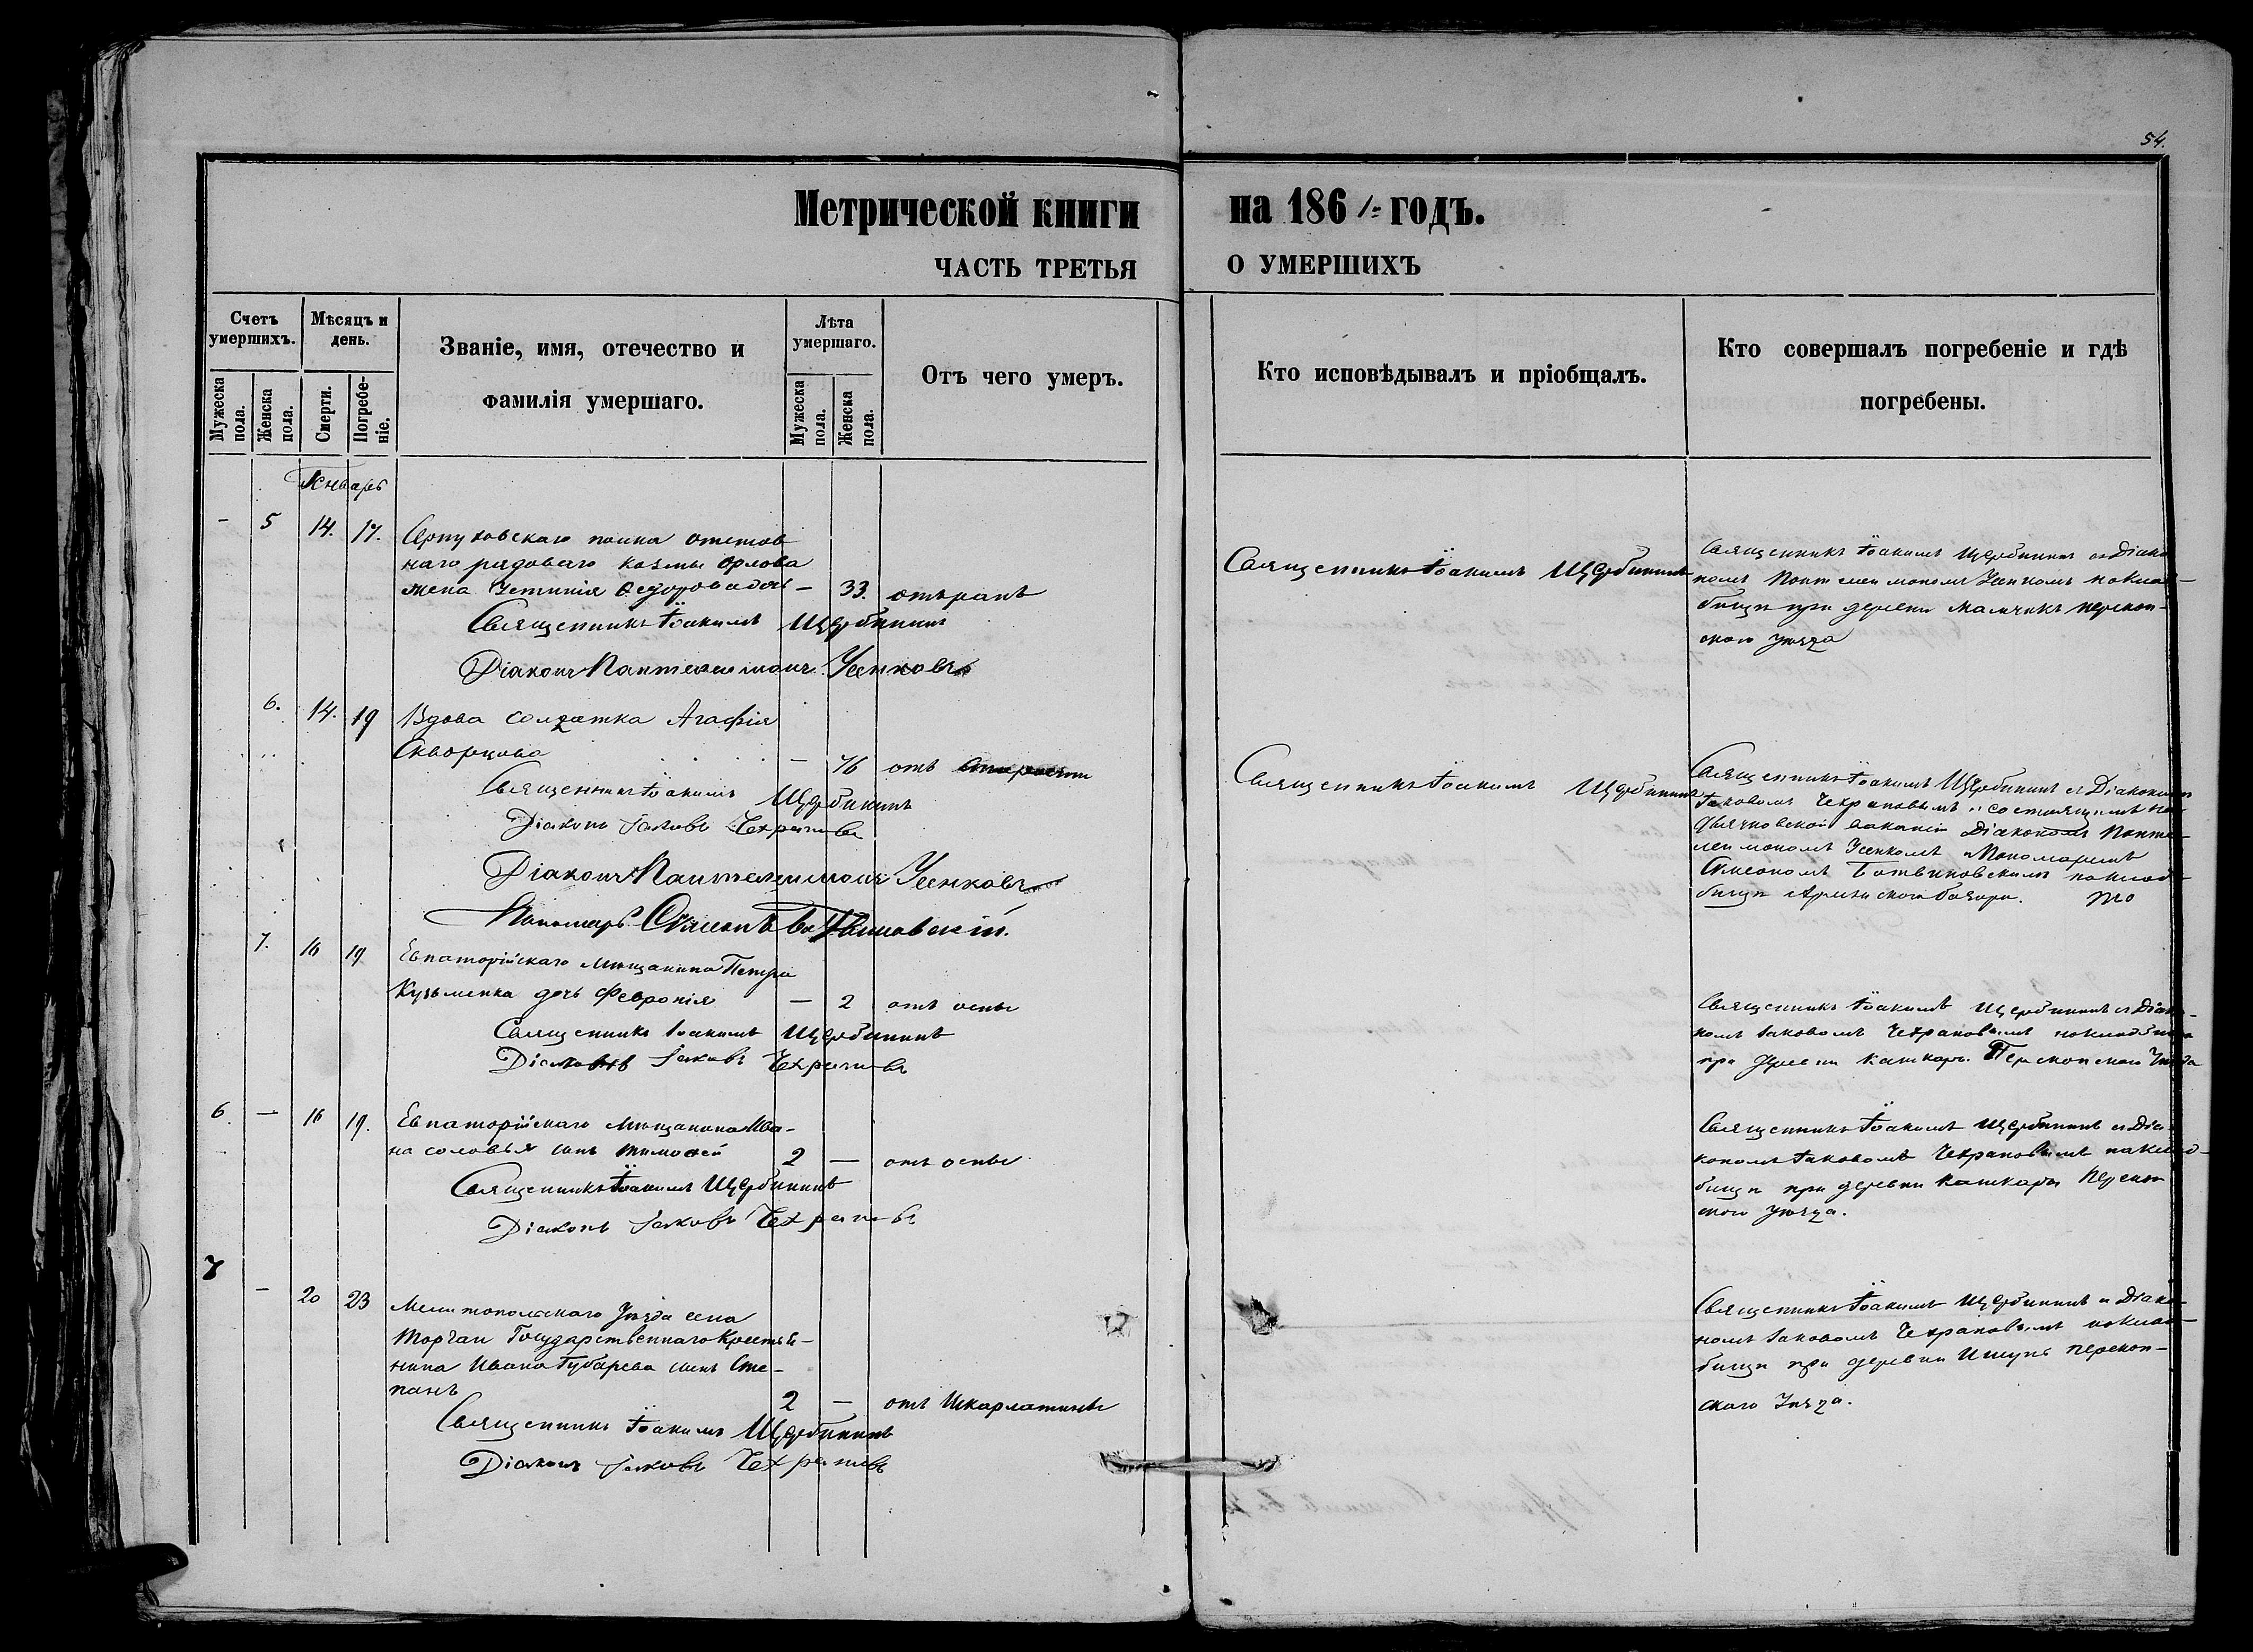 54.
Метрической книги на 1861 годъ.
ЧАСТЬ ТРЕТЬЯ О УМЕРШИХЪ
Счетъ умершихъ.
Мужеска пола.
Женска пола.
Мѣсяцъ и день.
Смерти.
Погребе-
ніе.
Званіе, имя, отечество и
фамилія умершаго.
Лѣта умершаго.
Мужеска пола.
Женска пола.
Отъ чего умеръ.
Кто исповѣдывалъ и пріобщалъ.
Кто совершалъ погребеніе и гдѣ
погребены.
Январь
- 5 14. 17. Серпуховскаго полка отстав
наго рядоваго Козмы Орлова
жена Устинія Ѳедорова дочь – 33. отъ ранъ
Священникъ Іоакимъ Щербининъ
Діаконъ Пантелеимонъ Усенковъ
Священникъ Іоакимъ Щербининъ
Священникъ Іоакимъ Щербининъ съ Діако
номъ Пантелеимономъ Усенкомъ на клад-
бищѣ при деревни Перекоп-
скаго уѣзда
6. 14. 19 Вдова солдатка Агафія
Скворцова – 76 отъ старости
Священникъ Іоакимъ Щербининъ
Діаконъ Іаковъ Чехрановъ
Діаконъ Пантелеимонъ Усенковъ
Пономарь Симеонъ Ботвиновскій.
Священникъ Іоакимъ Щербининъ
Священникъ Іоакимъ Щербининъ съ Діакономъ
Іаковомъ Чехрановымъ и состоящимъ на
дьячковской вакансіи Діакономъ Панте-
леимономъ Усенкомъ и Пономаремъ
Симеономъ Ботвиновскимъ на клад-
бищѣ Армянскаго Базара.
7. 16 19 Евпаторійскаго мѣщанина Петра
Кузьменка дочь Февронія – 2 отъ оспы
Священникъ Іоакимъ Щербининъ
Діаконъ Іаковъ Чехрановъ
Священникъ Іоакимъ Щербининъ съ Діако-
номъ Іаковомъ Чехрановымъ на кладбищѣ
при деревни Кашкары Перекопскаго Уѣзда
6. – 16 19. Евпаторійскаго мѣщанина Ива-
на Соловья сынъ Тимоѳей 2 – отъ оспы
Священникъ Іоакимъ Щербининъ
Діаконъ Іаковъ Чехрановъ
Священникъ Іоакимъ Щербининъ съ Діа-
кономъ Іаковомъ Чехрановымъ на клад-
бищѣ при деревни Кашкары Перекоп
скаго Уѣзда.
7 – 20 23 Мелитопольскаго Уѣзда села
Торгаи Государственнаго Крестья-
нина Ивана Губарева сынъ Сте-
панъ 2 – отъ Шкарлатины
Священникъ Іоакимъ Щербининъ
Діаконъ Іаковъ Чехрановъ
Священникъ Іоакимъ Щербининъ съ Діако-
номъ Іаковомъ Чехрановымъ на клад-
бищѣ при деревни Ишунь Перекоп-
скаго Уѣзда.